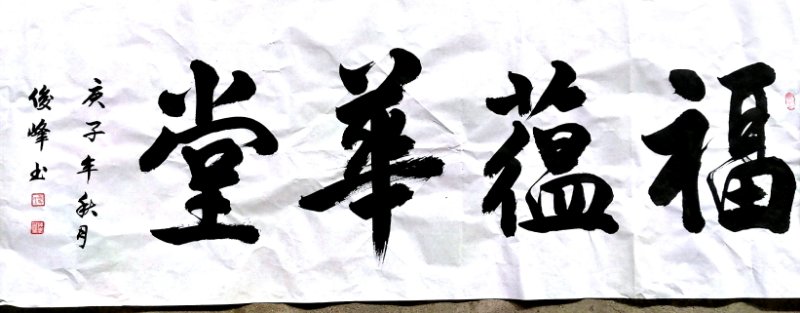 福蘊華堂
庚子年秋月
俊峰书